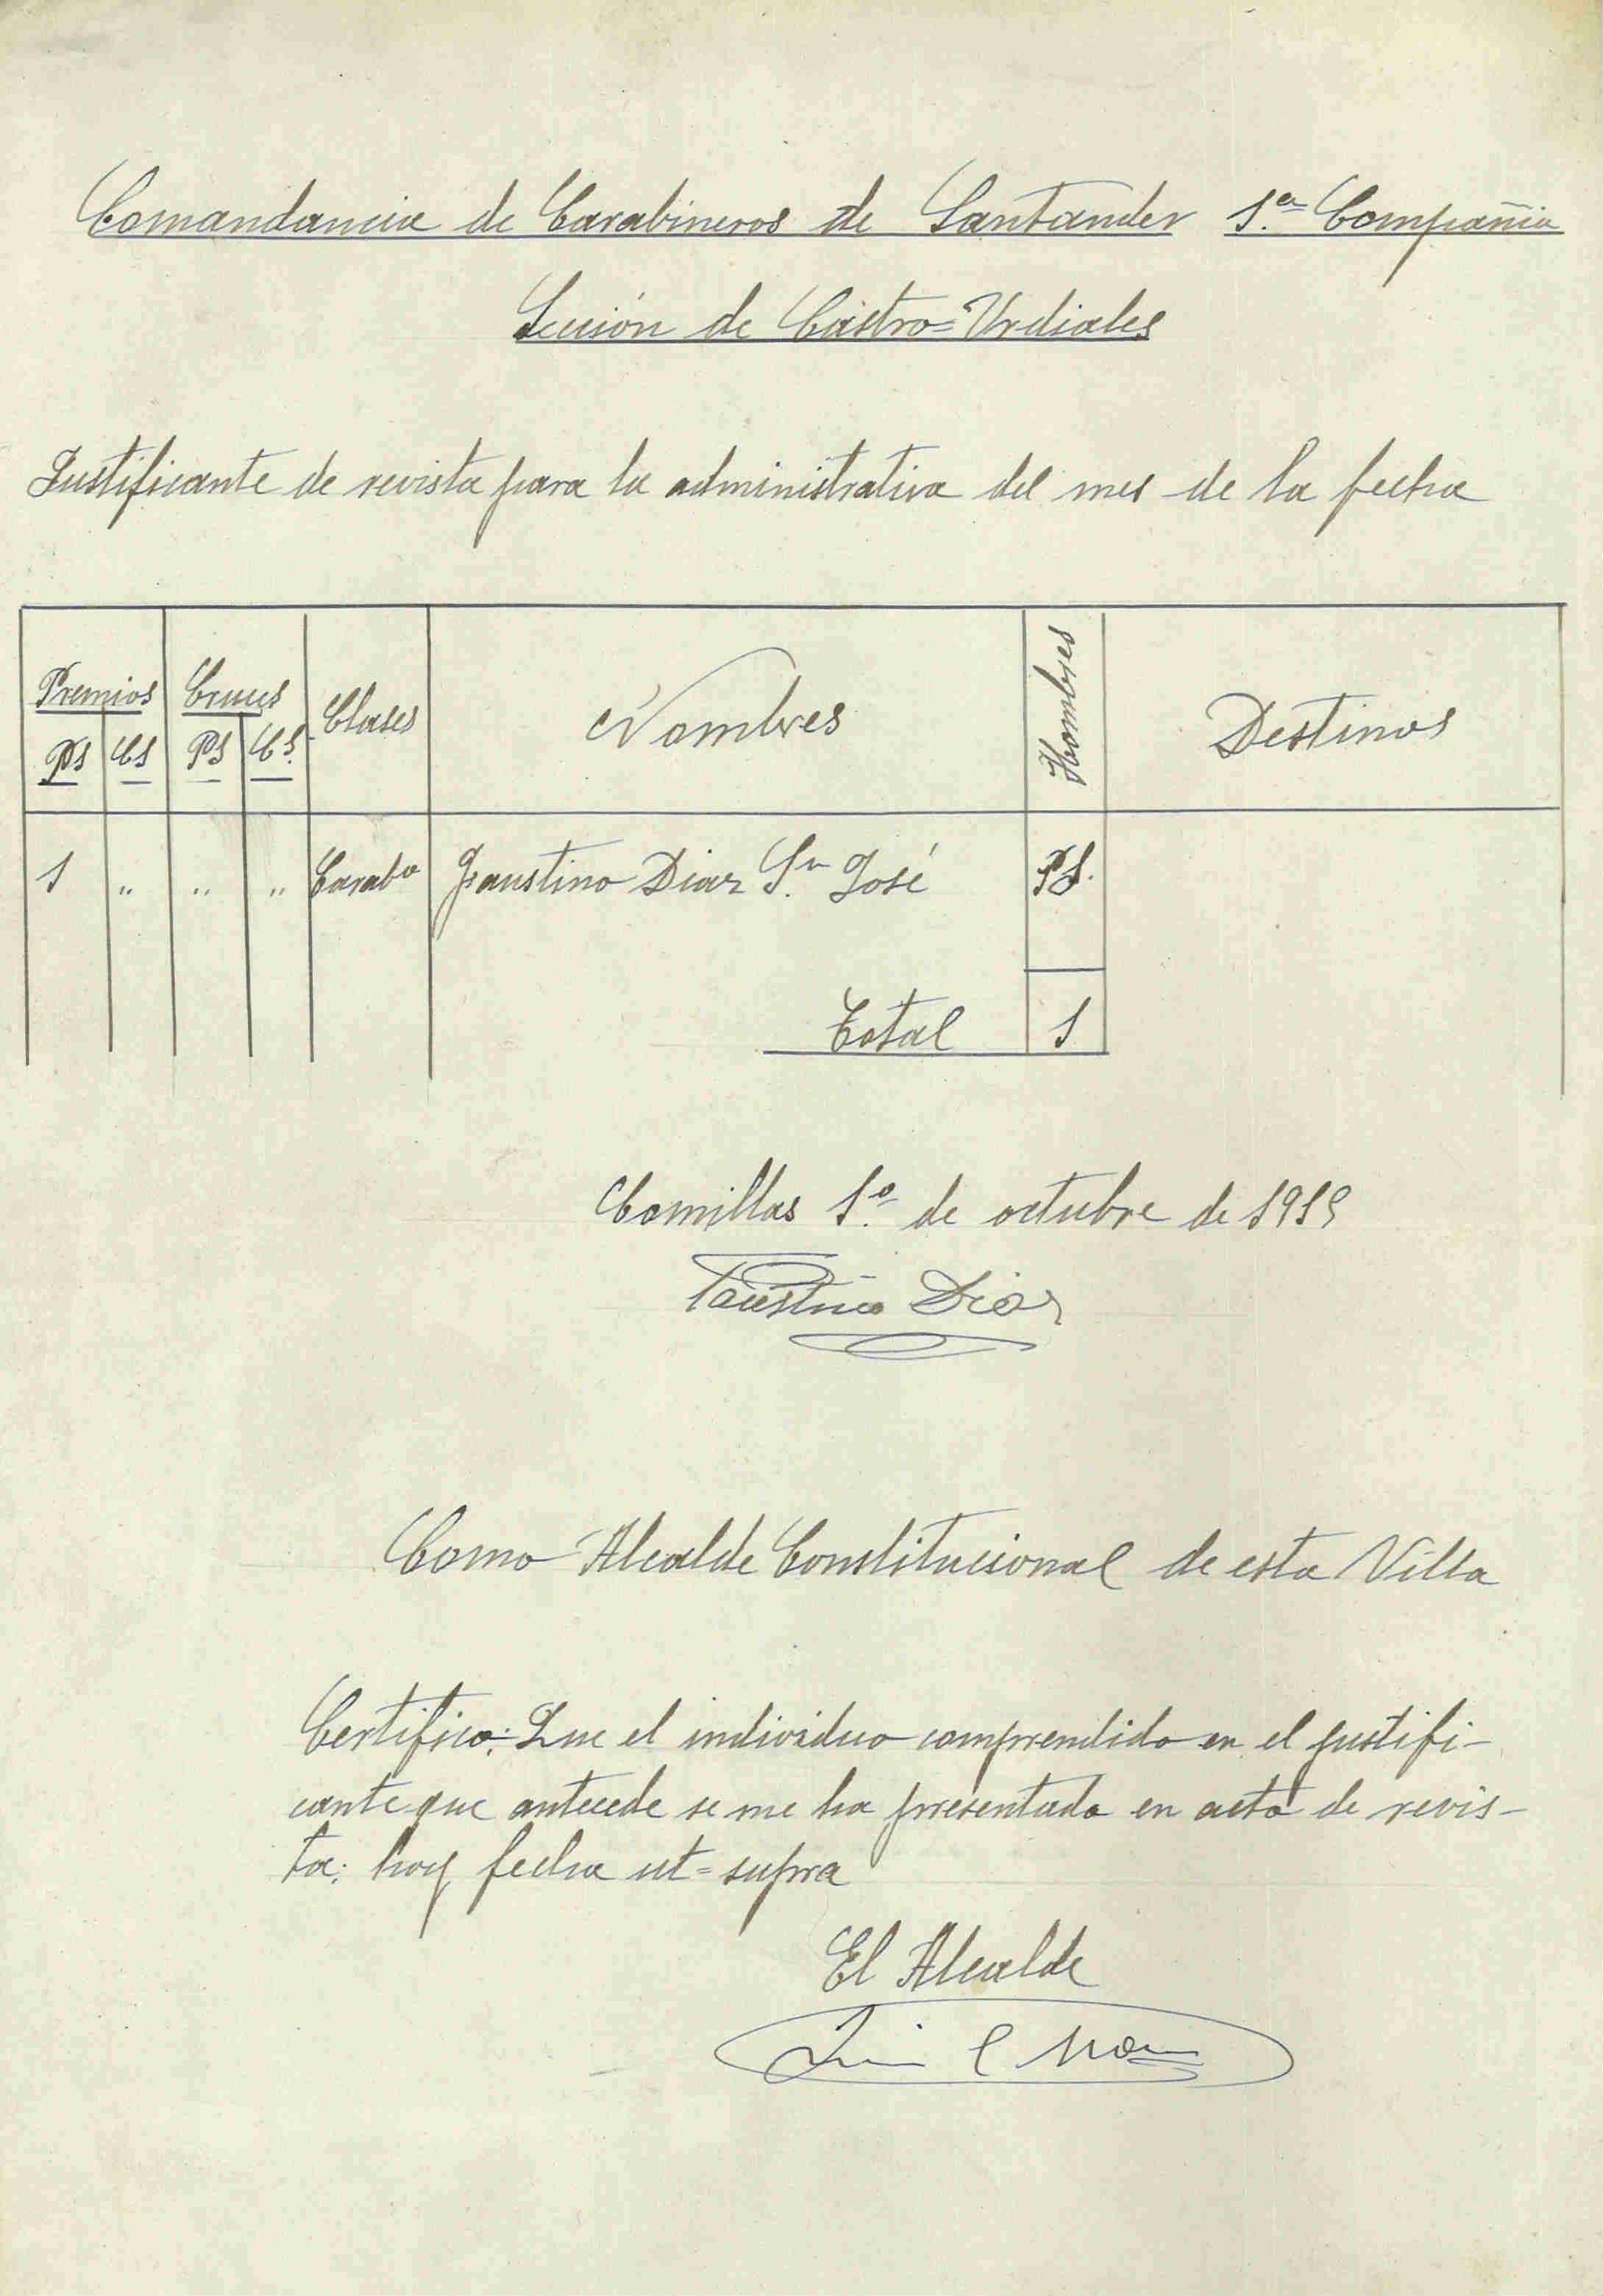 Comandancia de Carabineros de Santander 1.ª Compañia
Sección de Castro=Urdiales
Justificante de revista para la administrativa del mes de la fecha
Premios Cruces Clases Nombres Hombres Destinos
Ps Cs Ps Cs.
1 " " " Carabº Faustino Diaz Sn. José P S.
Total 1
Comillas 1.º de octubre de 1919
Faustino Diaz
Como Alcalde Constitucional de esta Villa
Certifico: Que el individuo comprendido en el justifi-
cante que antecede se me ha presentado en acto de revis-
ta: hoy fecha ut=supra
El Alcalde